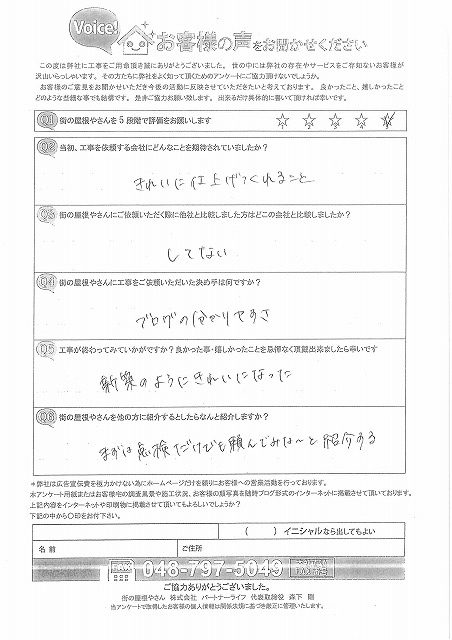 Voice!
お客様の声をお聞かせください
この度は弊社に工事をご用命頂き誠にありがとうございました。世の中には弊社の存在やサービスをご存知ないお客様が
沢山いらっしゃいます。その方たちに弊社をよく知って頂くためのアンケートにご協力頂けないでしょうか。
お客様のご意見をお聞かせいただき今後の活動に反映させていただきたいと考えております。良かったこと、嬉しかったこと
どのような些細な事でも結構です。是非ご協力お願い致します。出来るだけ具体的に書いて頂ければ幸いです。
Q1 街の屋根やさんを5段階で評価をお願いします
1 2 3 4 5
Q2 当初、工事を依頼する会社にどんなことを期待されていましたか?
きれいに仕上げてくれること
Q3 街の屋根やさんにご依頼いただく際に他社と比較しました方はどこの会社と比較しましたか?
してない
Q4 街の屋根やさんに工事をご依頼いただいた決め手は何ですか?
ブログの分かりやすさ
Q5 工事が終わってみていかがですか?良かった事・嬉しかったことを忌憚なく頂戴出来ましたら幸いです
新築のようにきれいになった
Q6 街の屋根やさんを他の方に紹介するとしたらなんと紹介しますか?
まずは点検だけでも頼んでみな〜と紹介する
*弊社は広告宣伝費を極力かけない為にホームページだけを頼りにお客様への営業活動を行っております。
本アンケート用紙またはお客様宅の調査風景や施工状況、お客様の顔写真を随時ブログ形式のインターネットに掲載させて頂いております。
上記内容をインターネットや印刷物に掲載させて頂いてもよろしいでしょうか?
下記の中から〇印をお付下さい。
( ) イニシャルなら出してもよい
名前 ご住所
048-797-5049
ご協力ありがとうございました。
街の屋根やさん 株式会社 パートナーライフ 代表取締役 森下 剛
当アンケートで取得したお客様の個人情報は関係法規に基づき厳正に管理いたします。